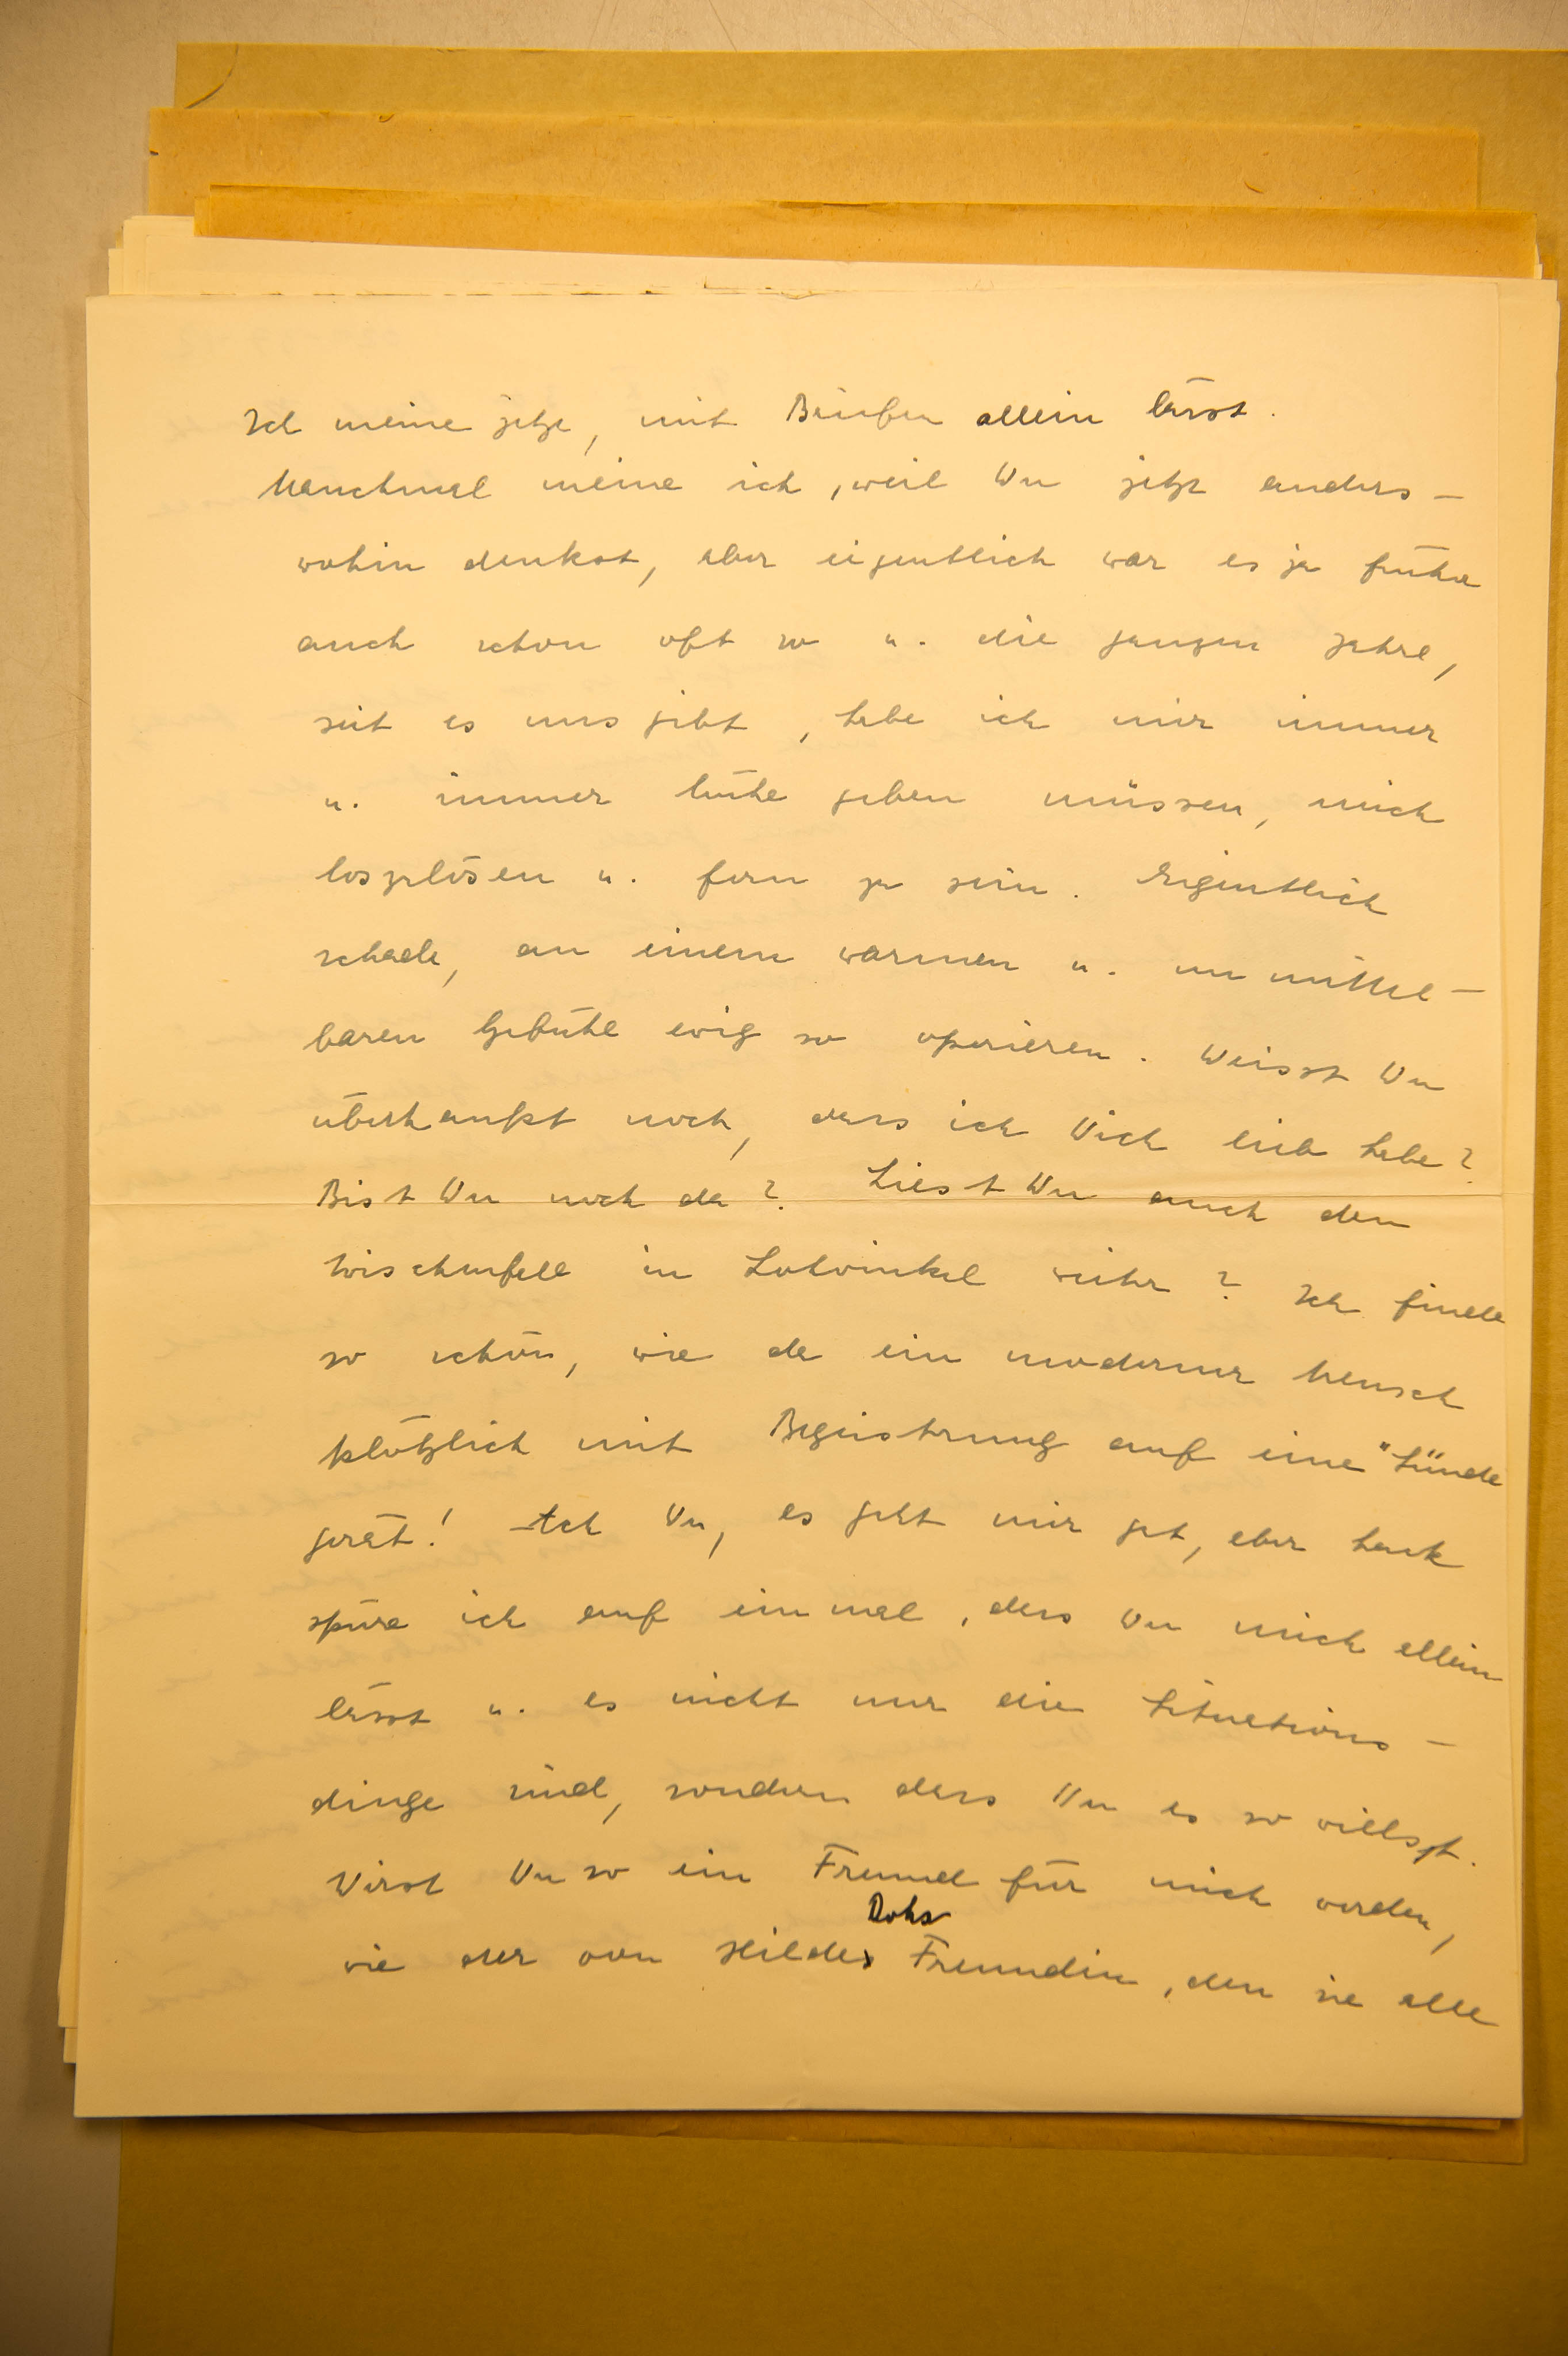 Ich meine jetzt, mit Briefen allein lässt.
Manchmal meine ich, weil Du jetzt anders-
wohin denkst, aber eigentlich war es ja früher
auch schon oft so u. die ganzen Jahre,
seit es uns gibt, habe ich mir immer
u. immer Mühe geben müssen, mich
loszulösen u. fern zu sein. Eigentlich
schade, an einem warmen u. unmittel-
baren Gefühl ewig so operieren. Weisst Du
überhaupt noch, dass ich Dich lieb habe?
Bist Du noch da? Liest Du auch den
in weiter? Ich finde
so schön, wie da ein moderner Mensch
plötzlich mit Begeisterung auf eine "Sünde
gerät! Ach Du, es geht mir gut, aber stark
spüre ich auf einmal, dass Du mich allein
lässt u. es nicht nur die Situations-
dinge sind, sondern dass Du es so willst.
Wirst Du so ein Freund für mich werden,
Dohs
wie der von Hildes Freundin, den sie alle